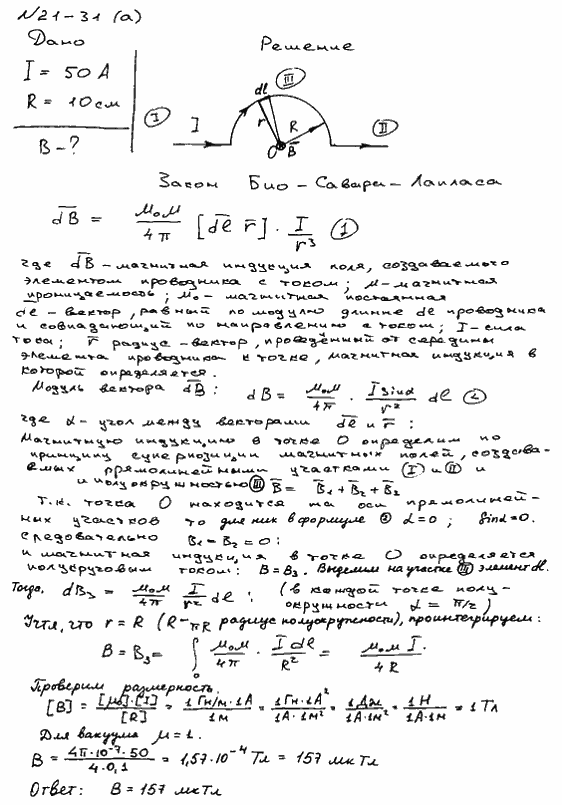 N21-31 (а)
Дано
Решение
I = 50 А
R = 10 см
B - ?
I I dl r R O B̄ III II
Закон Био-Савара-Лапласа
d̄B = μ₀μ/4π [d̄l r̄] · I/r³ (1)
где d̄B - магнитная индукция поля, создаваемого
элементом проводника с током; μ - магнитная
проницаемость; μ₀ - магнитная постоянная
dl - вектор, равный по модулю длинне dl проводника
и совпадающий по направлению с током; I - сила
тока; r̄ радиус-вектор, проведённый от середины
элемента проводника к точке, магнитная индукция в
которой определяется.
Модуль вектора d̄B : dB = μ₀μ/4π · I sinα/r² dl (2)
где α - угол между векторами d̄l и r̄ :
Магнитную индукцию в точке O определим по
принципу суперпозиции магнитных полей, создава-
емых прямолинейными участками (I) и (II) и
и полуокружностью (III) B̄ = B̄₁ + B̄₂ + B̄₃
Т.к. точка O находится на оси прямолиней-
ных участков то для них в формуле (2) α = 0 ; sinα = 0.
следовательно B₁ = B₂ = 0 :
и магнитная индукция в точке O определяется
полукруговым током: B = B₃. Выделим на участке (III) элемент dl.
Тогда, dB₃ = μ₀μ/4π I/r² dl ; (в каждой точке полу-
окружности α = π/2)
Учтя, что r = R (R - радиус полуокружности), проинтегрируем :
B = B₃ = ∫₀^πR μ₀μ/4π · I dl/R² = μ₀μ I/4R .
Проверим размерность.
[B] = [μ₀]·[I]/[R] = 1 Гн/м · 1А/1м = 1 Гн · 1А²/1А · 1м² = 1 Дж/1А·1м² = 1 Н/1А·1м = 1 Тл
Для вакуума μ = 1.
B = 4π·10⁻⁷·50/4·0,1 = 1,57·10⁻⁴ Тл = 157 мкТл
Ответ: B = 157 мкТл